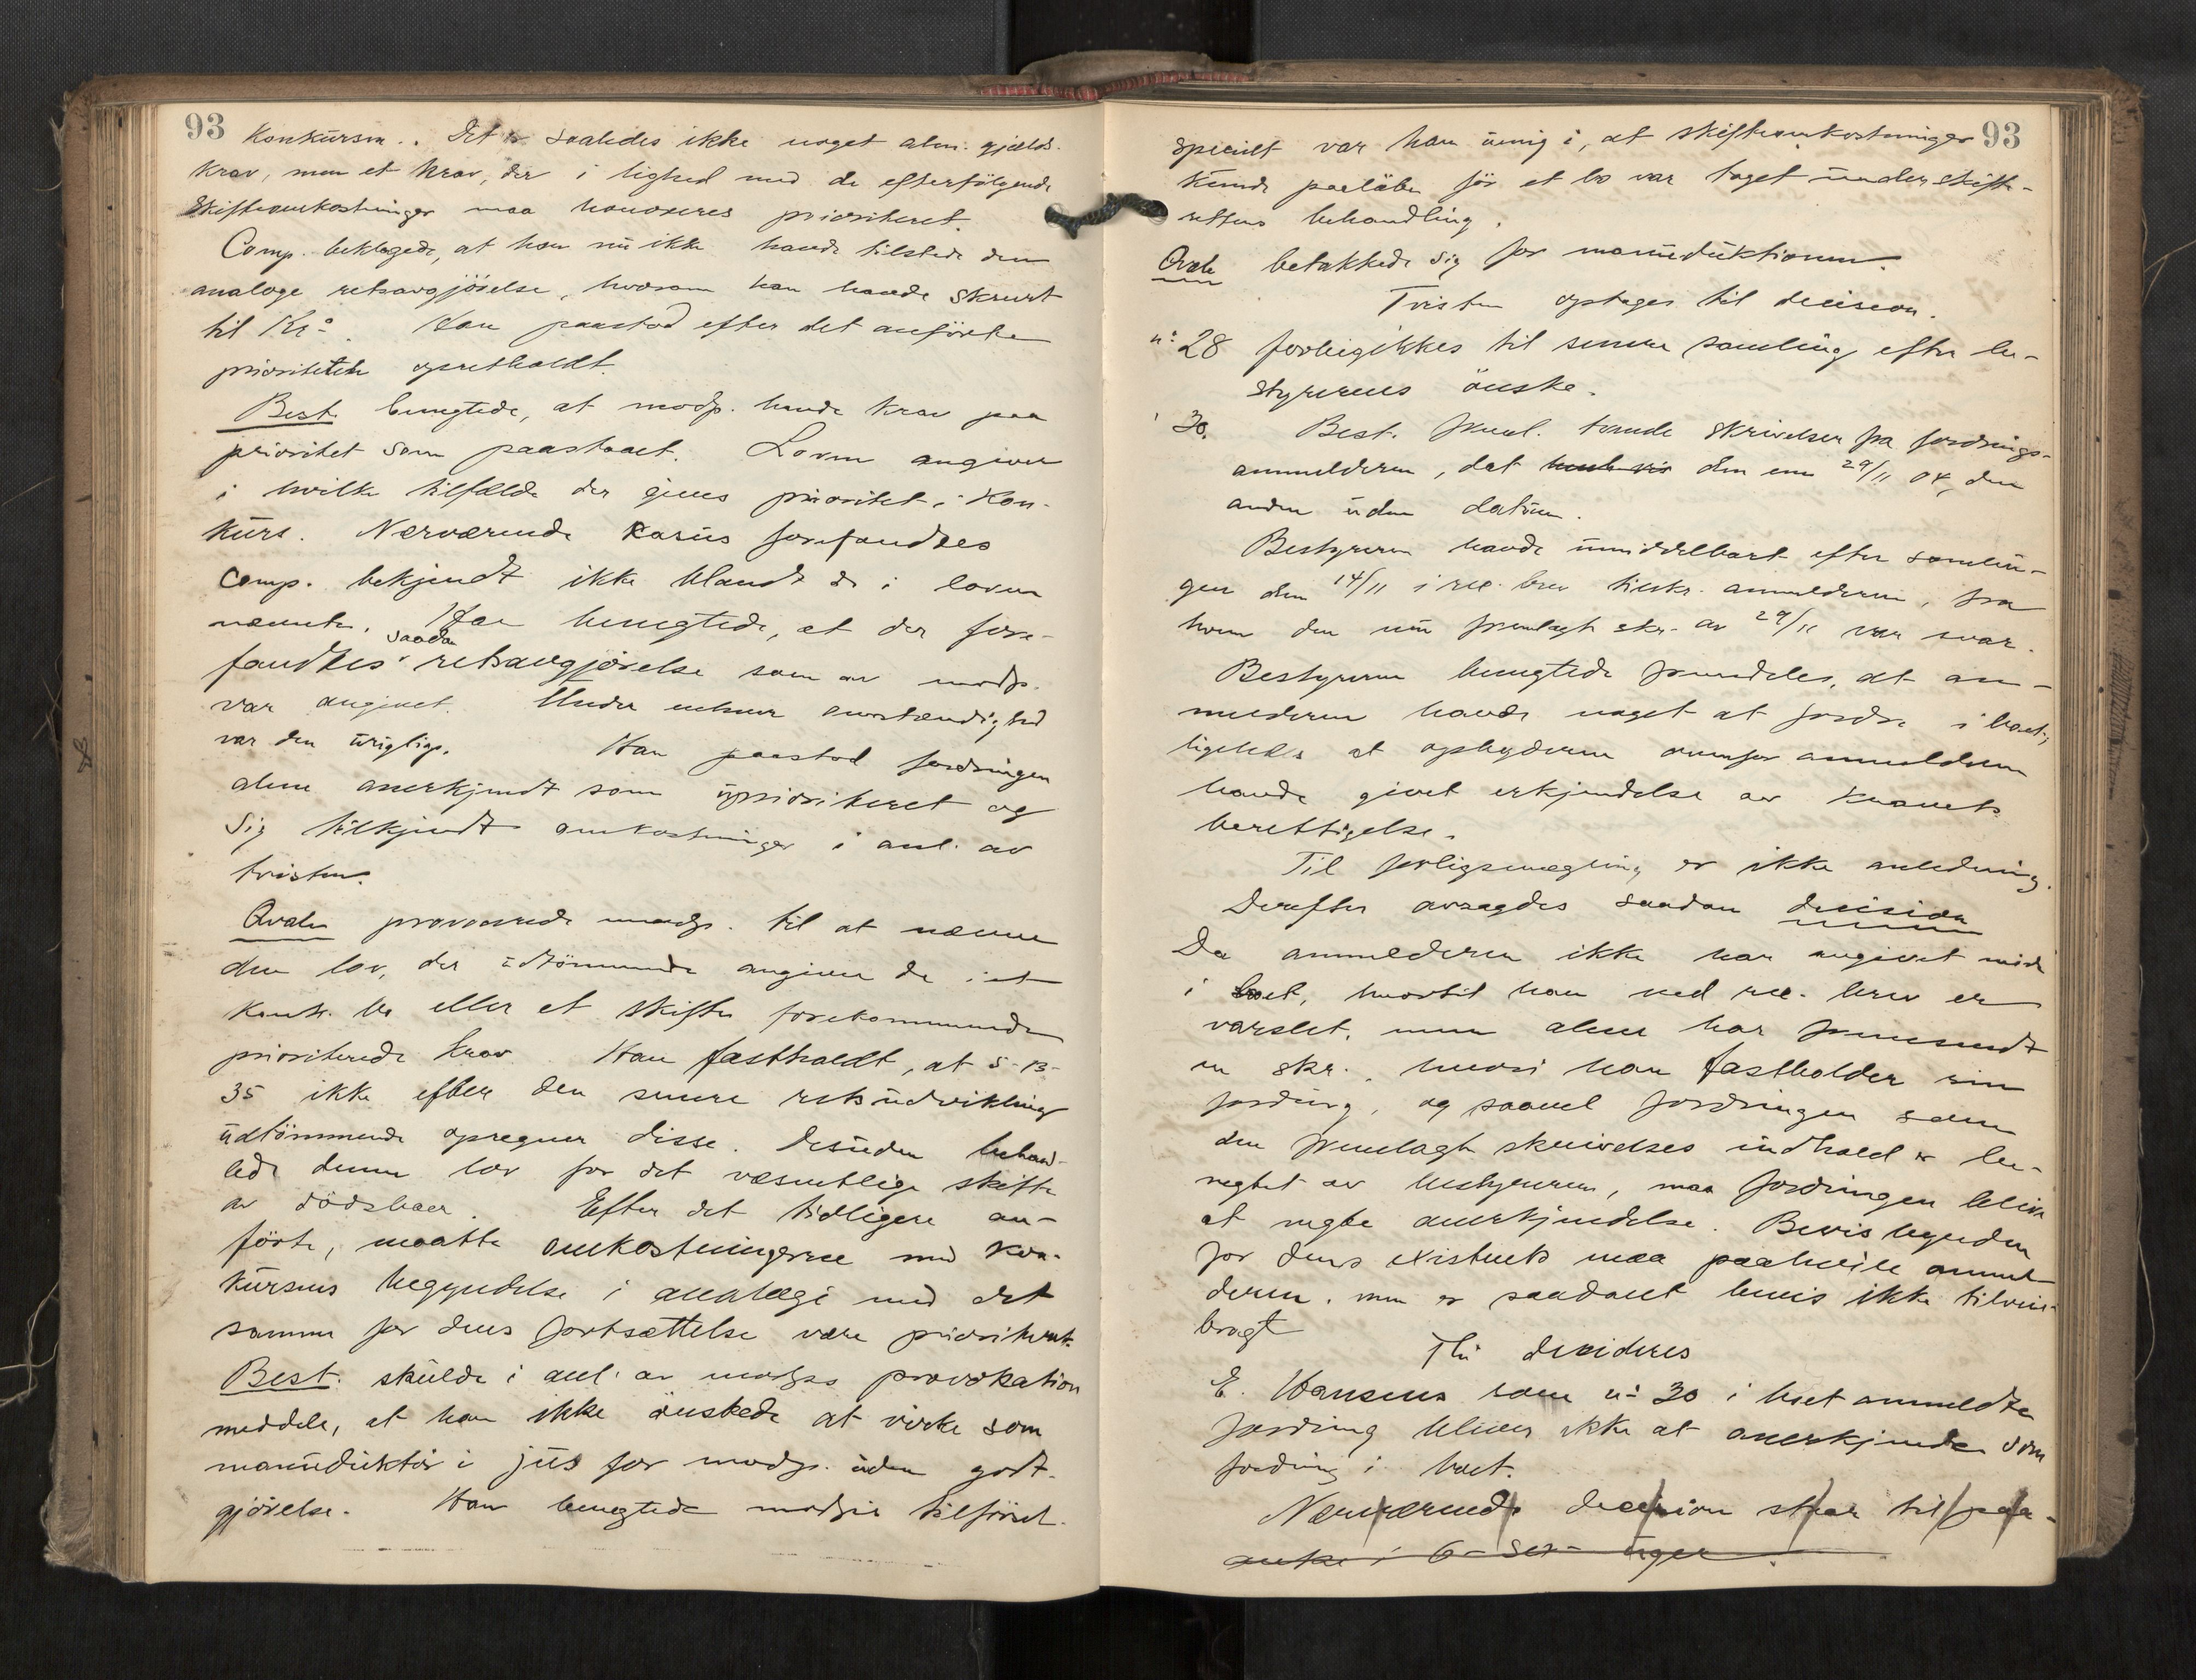 93
Konkursen.. Det er saaledes ikke noget alm. gjælds-
krav, men et krav, der i lighed med de efterfölgende
skifteomkostninger maa honoreres prioriteret.
Comp. beklagede, at han nu ikke havde tilstede den
analoge retsavgjörelse, hvorom han havde skrevet
til Kra. Han paastod efter det anförte
prioriteten opretholdt.
Best. benegtede, at modp. havde krav paa
prioritet som paastaaet. Loven angiver
i hvilke tilfælde der gives prioritet i kon-
kurs. Nærværende kasus forefandtes
comp. bekjendt ikke blandt de i loven
nævnte. Han benegtede, at der fore-
fandtes saadan retsavgjörelse som av modp.
var angivet. Under enhver omstændighed
var den urigtig. Han paastod fordringen
alene anerkjendt som uprioriteret og
sig tilkjendt omkostninger i anl. av
tvisten.
Qvale provocerede modp. til at nævne
den lov, der udtömmende angiver de i et
konk. bo eller et skifte forekommende
prioriterede krav. Han fastholdt, at 5-13-
35 ikke efter den senere retsudvikling
udtömmende opregner disse. Desuden behand-
lede denne lov for det væsentlige skifte
av dödsboer. Efter det tidligere an-
förte, maatte omkostningerne med kon-
kursens begyndelse i analogi med det
samme for dens fortsættelse være prioriteret.
Best. skulde i anl. av modps provokation
meddele, at han ikke önskede at virke som
manuduktör i jus for modp. uden godt-
gjörelse. Han benegtede modps tilförsel.
93
specielt var han uenig i, at skifteomkostninger
kunde paalöbe för et bo var taget under skifte-
rettens behandling.
Qvale betakkede sig for manuduktionen.
Tvisten optages til decision.
no 28 forbigikkes til senere samling efter be-
styrerens önske.
" 30. Best. freml. tvende skrivelser fra fordrings-
anmelderen, dat den ene 29/11 04, den
anden uden datum.
Bestyreren havde umiddelbart efter samlin-
gen den 14/11 i rec. brev tilskr. anmelderen, fra
hvem den nu fremlagte skr. av 29/11 var svar.
Bestyreren benegtede fremdeles, at an-
melderen havde noget at fordre i boet;
ligeledes at opbyderen overfor anmelderen
havde givet erkjendelse av kravets
berettigelse.
Til forligsmægling er ikke anledning.
Derefter avsagdes saadan decision
Da anmelderen ikke har angivet möde
i boet, hvortil han ved rec. brev er
varslet, men alene har fremsendt
en skr., hvori han fastholder sin
fordring, og saavel fordringen som
den fremlagte skrivelses indhold er be-
negtet av bestyreren, maa fordringen blive
at negte anerkjendelse. Bevisbyrden
for dens existents maa paahvile anmel-
deren, men er saadant bevis ikke tilveie-
bragt
Thi decideres
E. Hansens som no 30 i boet anmeldte
fordring bliver ikke at anerkjende som
fordring i boet.
Nærværende decision staar til paa-
anke i 6 - sex - uger.